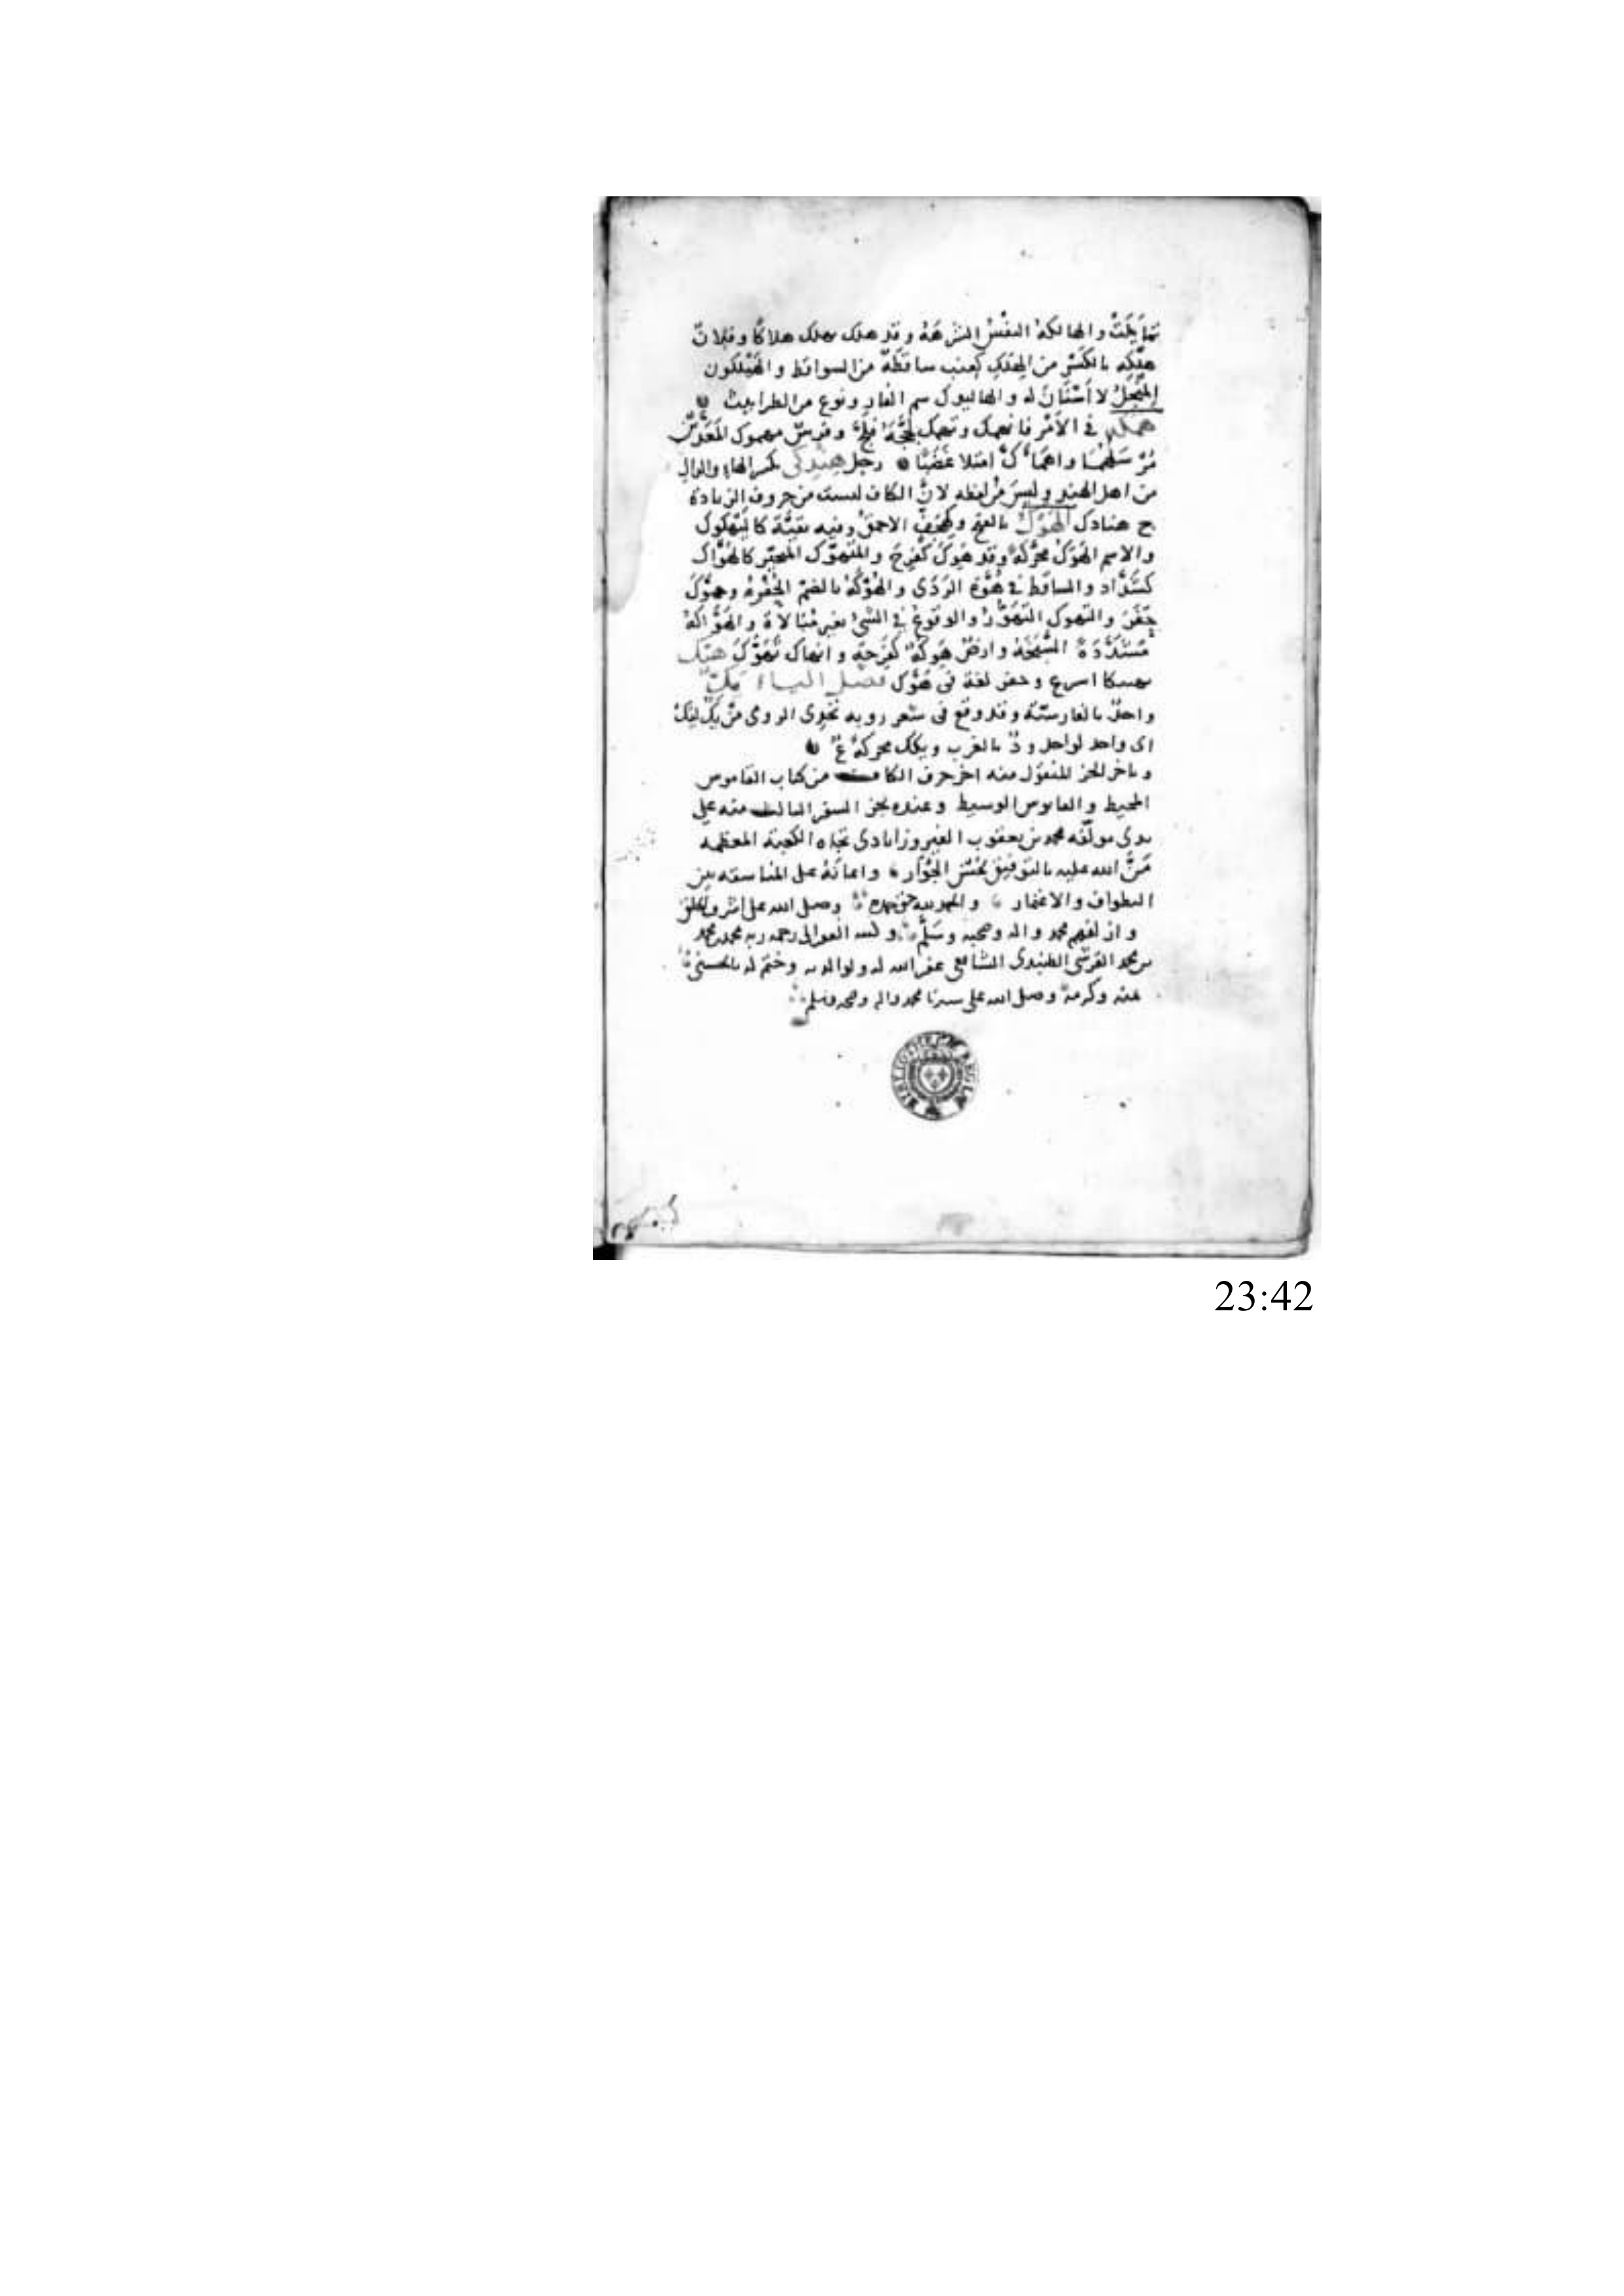 تمايلت والهالكة النفس الشرهة وقد هلك يهلك هلاكا وفلان
هلكه بالكسر من الهلك كعنب ساقطة من السواقط والهيلكون
المنجل لا أسنان له والهالوك سم الفار ونوع من الطراثيث
همكه في الأمر فانهمك وتهمك لججه فلج وفرس مهموك المعدين
مرسلهما واهماك امتلا غضبا رجل هندكي بكسر الهاء والدال
من اهل الهند وليس من لفظه لان الكاف ليست من حروف الزيادة
ج هنادك الهوك بالفتح وكهجف الاحمق وفيه بقية كالتهكوك
والاسم الهوك محركة وقد هوك كفرح والمتهوك المتحير كالهواك
كشداد والساقط في هوة الردى والهوكة بالضم الحفرة وهوك
حفر والتهوك التهور والوقوع في الشئ بغير مبالاة والهواكة
مشددة السبخة وارض هوكة كفرحة وانهاك تهوك هيك
تهييكا اسرع وحفر لغة في هوك فصل الياء يك
واحد بالفارسية وقد وقع في شعر روبه تحدى الرومي من يك ليك
اي واحد لواحد ود بالغرب ويكك محركة ع
وباخر الجز المنقول منه اخر حرف الكاف من كتاب القاموس
المحيط والقابوس الوسيط وعنده نجز السفر الثالث منه على
يدي مولفه محمد بن يعقوب الفيروزابادي تجاه الكعبة المعظمة
من الله عليه بالتوفيق بحسن الجوار واعانه على المنافسة بين
الطواف والاعتمار والحمد لله حق حمده وصلى الله على اشرف الخلق
وازلفهم محمد واله وصحبه وسلم وكتبه الفقير الى رحمة ربه محمد بن محمد
بن محمد القرشي الطنبدي الشافعي غفر الله له ولوالديه وختم له بالحسنى
بمنه وكرمه وصلى الله على سيدنا محمد واله وصحبه وسلم
BIBLIOTHECAE REGIAE
23:42